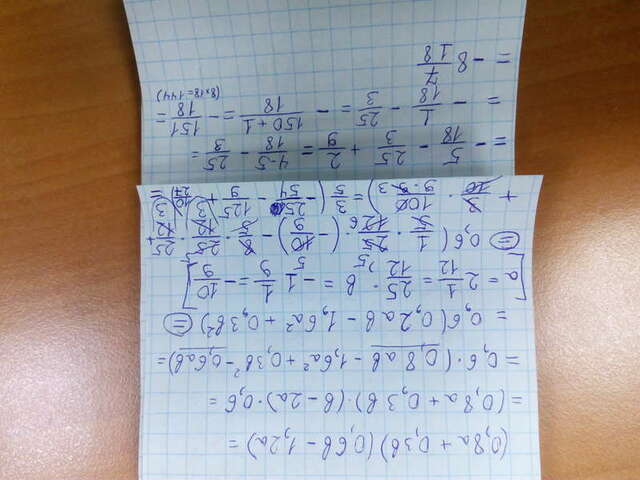 (0,8a + 0,3b)(0,6b - 1,2a) =
= (0,8a + 0,3b)·(b - 2a)·0,6 =
= 0,6·(0,8ab - 1,6a² + 0,3b² - 0,6ab) =
= 0,6(0,2ab - 1,6a² + 0,3b²) =
[a = 2 1/12 = 25/12; b = -1 1/9 = -10/9]
= 0,6(1/5 · 25/12 · (-10/9) - 8/5 · 25/12 · 25/12 +
+ 3/10 · 100/9·9) = 3/5(-25/54 - 125/9 + 10/27) =
= -5/18 - 25/3 + 2/9 = 4-5/18 - 25/3 =
= -1/18 - 25/3 = -150+1/18 = -151/18 =
(8x18=144)
= -8 7/18